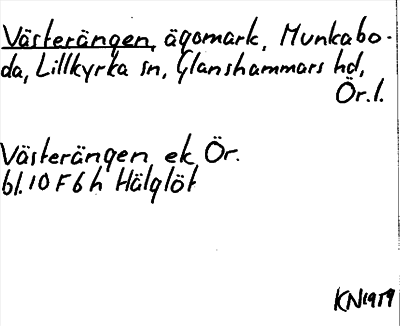 Västerängen, ägomark, Munkabo-
da, Lillkyrka sn, Glanshammars hd,
Ör.l.
Västerängen ek Ör.
bl. 10 F 6 h Hälglöt
KN 1979